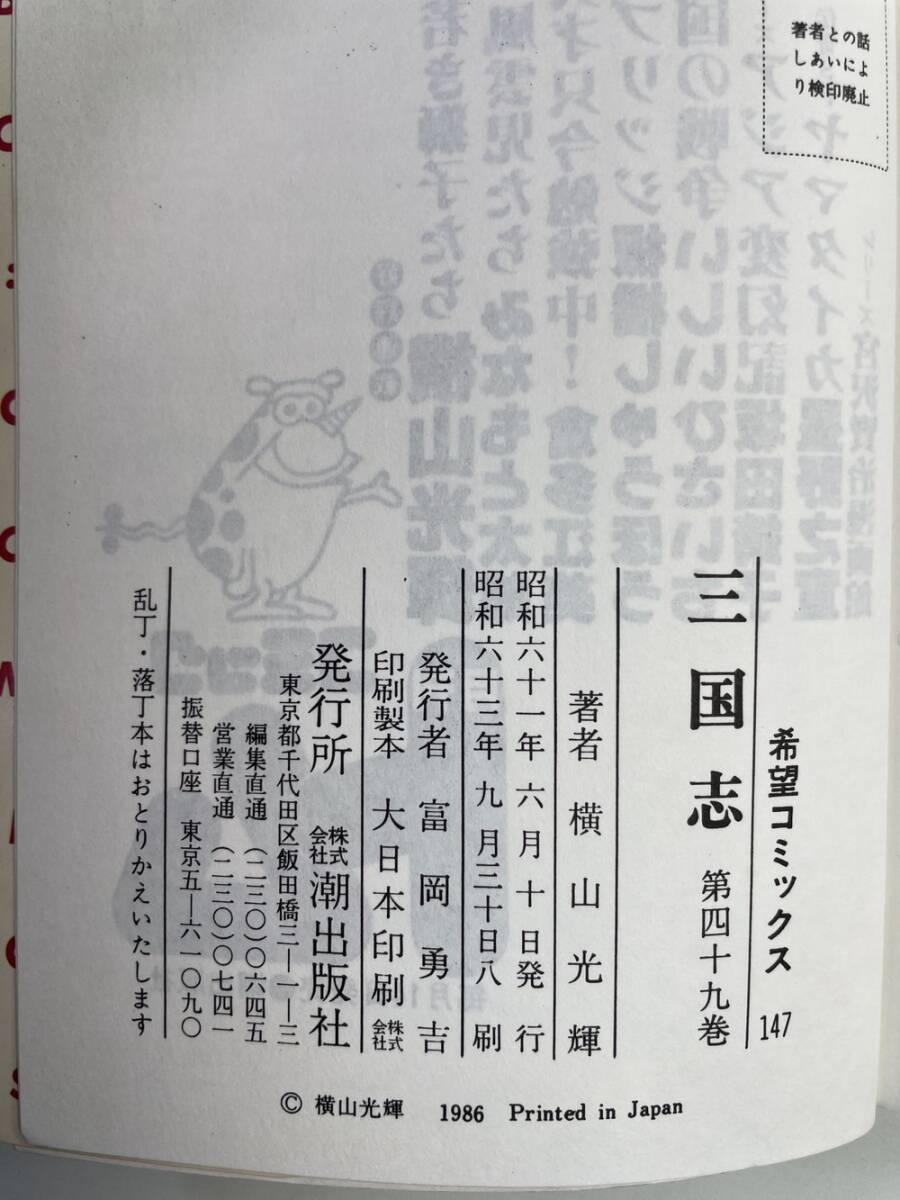 著者との話
しあいによ
り検印廃止
希望コミックス 147
三国志 第四十九巻
著者 横山光輝
昭和六十一年六月十日発行
昭和六十三年九月三十日八刷
発行者 富岡勇吉
印刷製本 大日本印刷株式会社
発行所 株式会社潮出版社
東京都千代田区飯田橋三―一―三
編集直通 (二三〇)〇六四五
営業直通 (二三〇)〇七四一
振替口座 東京五―六一〇九〇
乱丁・落丁本はおとりかえいたします
© 横山光輝 1986 Printed in Japan